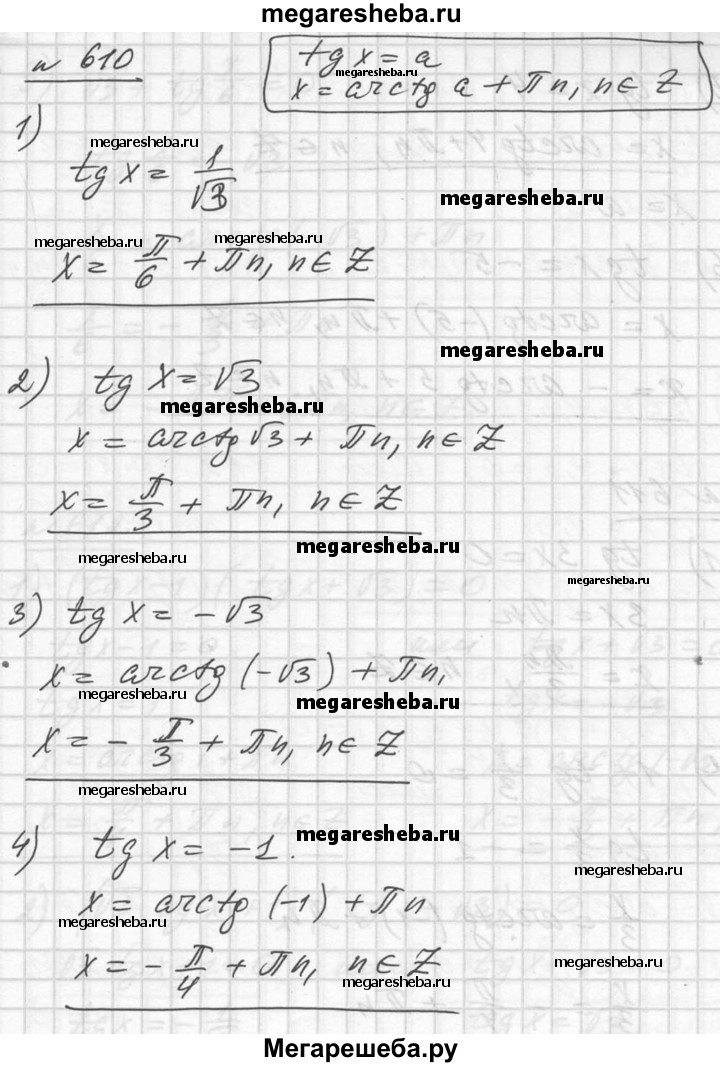 megaresheba.ru
№ 610
tg x = a
megaresheba.ru
x = arctg a + πn, n ∈ Z
1)
megaresheba.ru
tg x = 1/√3
megaresheba.ru
megaresheba.ru megaresheba.ru
x = π/6 + πn, n ∈ Z
megaresheba.ru
2) tg x = √3
megaresheba.ru
x = arctg √3 + πn, n ∈ Z
x = π/3 + πn, n ∈ Z
megaresheba.ru megaresheba.ru
megaresheba.ru
3) tg x = -√3
x = arctg (-√3) + πn,
megaresheba.ru megaresheba.ru
x = - π/3 + πn, n ∈ Z
megaresheba.ru
4) tg x = -1.
megaresheba.ru
megaresheba.ru
x = arctg (-1) + πn
megaresheba.ru
x = - π/4 + πn, n ∈ Z
megaresheba.ru
megaresheba.ru
Мегарешеба.ру